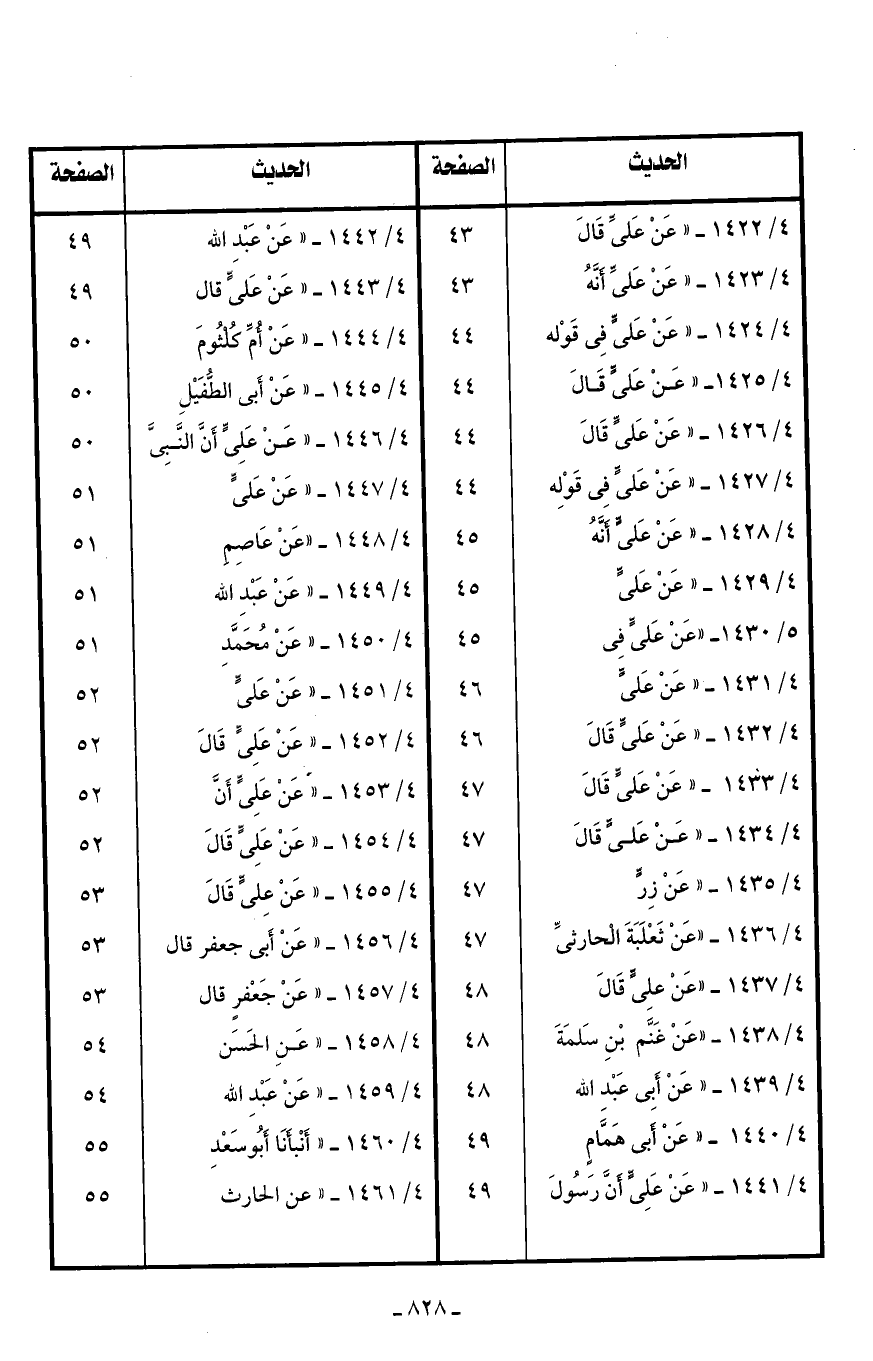 الحديث | الصفحة | الحديث | الصفحة
٤/ ١٤٢٢ ـ « عَنْ عَلىٍّ قَالَ | ٤٣ | ٤/ ١٤٤٢ ـ « عَنْ عَبْدِ الله | ٤٩
٤/ ١٤٢٣ ـ « عَنْ عَلىٍّ أَنَّهُ | ٤٣ | ٤/ ١٤٤٣ ـ « عَنْ عَلىٍّ قال | ٤٩
٤/ ١٤٢٤ ـ « عَنْ عَلىٍّ فِى قَوْله | ٤٤ | ٤/ ١٤٤٤ ـ « عَنْ أُمِّ كُلْثُومَ | ٥٠
٤/ ١٤٢٥ـ « عَـنْ عَلىٍّ قَـالَ | ٤٤ | ٤/ ١٤٤٥ ـ « عَنْ أَبى الطُّفَيْلِ | ٥٠
٤/ ١٤٢٦ ـ « عَنْ عَلىٍّ قَالَ | ٤٤ | ٤/ ١٤٤٦ ـ « عَـنْ عَلِىٍّ أَنَّ النَّـبِىَّ | ٥٠
٤/ ١٤٢٧ ـ « عَنْ عَلىٍّ فِى قَوْلِه | ٤٤ | ٤/ ١٤٤٧ ـ « عَنْ عَلىٍّ | ٥١
٤/ ١٤٢٨ ـ « عَنْ عَلىٍّ أَنَّهُ | ٤٥ | ٤/ ١٤٤٨ ـ «عَنْ عَاصِمِ | ٥١
٤/ ١٤٢٩ ـ « عَنْ عَلىٍّ | ٤٥ | ٤/ ١٤٤٩ ـ « عَنْ عَبْدِ الله | ٥١
٥/ ١٤٣٠ـ «عَنْ عَلىٍّ فِى | ٤٥ | ٤/ ١٤٥٠ ـ « عَنْ مُحَمَّدِ | ٥١
٤/ ١٤٣١ ـ « عَنْ عَلىٍّ | ٤٦ | ٤/ ١٤٥١ ـ « عَنْ عَلىٍّ | ٥٢
٤/ ١٤٣٢ ـ « عَنْ عَلىٍّ قَالَ | ٤٦ | ٤/ ١٤٥٢ ـ « عَنْ عَلىٍّ قَالَ | ٥٢
٤/ ١٤٣٣ ـ « عَنْ عَلىٍّ قَالَ | ٤٧ | ٤/ ١٤٥٣ ـ « عَنْ عَلِىٍّ أَنَّ | ٥٢
٤/ ١٤٣٤ ـ « عَـنْ عَلـىٍّ قَالَ | ٤٧ | ٤/ ١٤٥٤ ـ « عَنْ عَلِىٍّ قَالَ | ٥٢
٤/ ١٤٣٥ ـ « عَنْ زِرٍّ | ٤٧ | ٤/ ١٤٥٥ ـ « عَنْ علِىٍّ قَالَ | ٥٣
٤/ ١٤٣٦ ـ «عَنْ ثَعْلَبَةَ الْحارثىِّ | ٤٧ | ٤/ ١٤٥٦ ـ « عَنْ أَبى جعفر قال | ٥٣
٤/ ١٤٣٧ ـ «عَنْ علىٍّ قَالَ | ٤٨ | ٤/ ١٤٥٧ ـ « عَنْ جَعْفَرٍ قال | ٥٣
٤/ ١٤٣٨ ـ «عَنْ غَنَّم بْنِ سَلمَةَ | ٤٨ | ٤/ ١٤٥٨ ـ « عَـنِ الحَسَن | ٥٤
٤/ ١٤٣٩ ـ « عَنْ أَبِى عَبْدِ الله | ٤٨ | ٤/ ١٤٥٩ ـ « عَنْ عَبْدِ الله | ٥٤
٤/ ١٤٤٠ ـ « عَنْ أَبى هَمَّامٍ | ٤٩ | ٤/ ١٤٦٠ ـ « أَنْبأَنَا أَبُو سَعْدِ | ٥٥
٤/ ١٤٤١ ـ « عَنْ عَلِىٍّ أَنَّ رَسُولَ | ٤٩ | ٤/ ١٤٦١ ـ « عن الحارث | ٥٥
ـ ٨٢٨ ـ